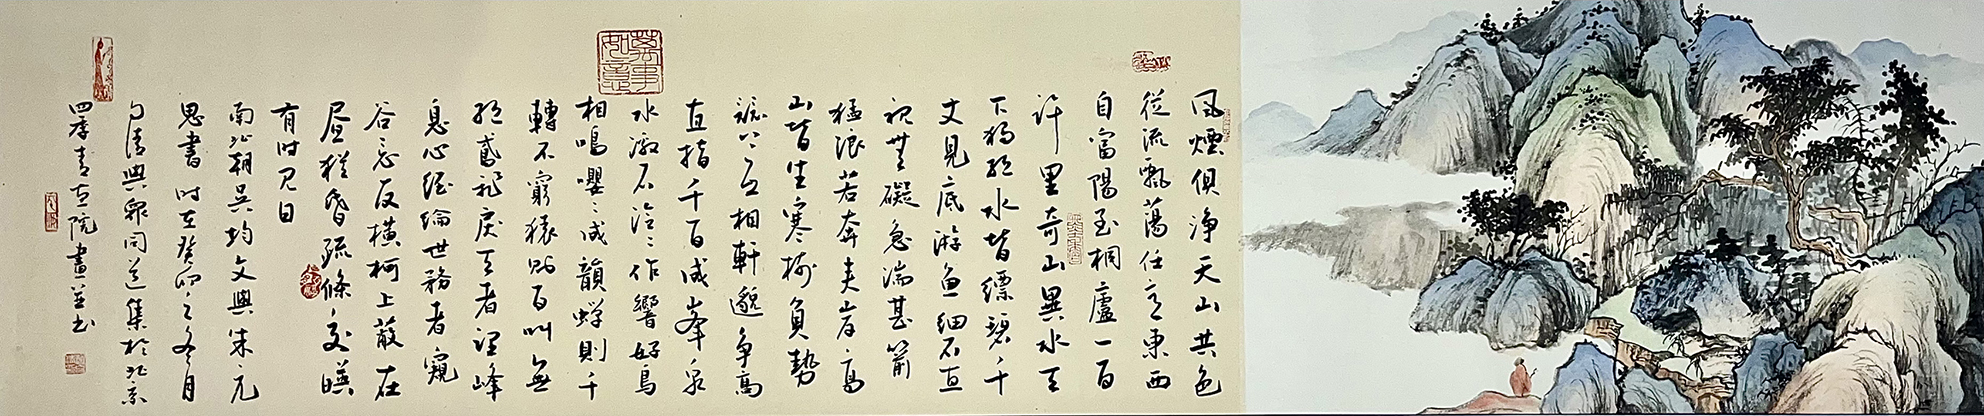 風煙俱淨天山共色
從流飄蕩任意東西
自富陽至桐廬一百
許里奇山異水天
下獨絕水皆縹碧千
丈見底游魚細石直
視無礙急湍甚箭
猛浪若奔夾岸高
山皆生寒樹負勢
競上互相軒邈爭高
直指千百成峯泉
水激石泠〻作響好鳥
相鳴嚶〻成韻蟬則千
轉不窮猿則百叫無
絕鳶飛戾天者望峰
息心經綸世務者窺
谷忘反橫柯上蔽在
晝猶昏疏條交映
有時見日
南北朝吳均文與朱元
思書時在癸卯之冬月
清興眾同道集於北京
四季青画院畫並書
萬事如意